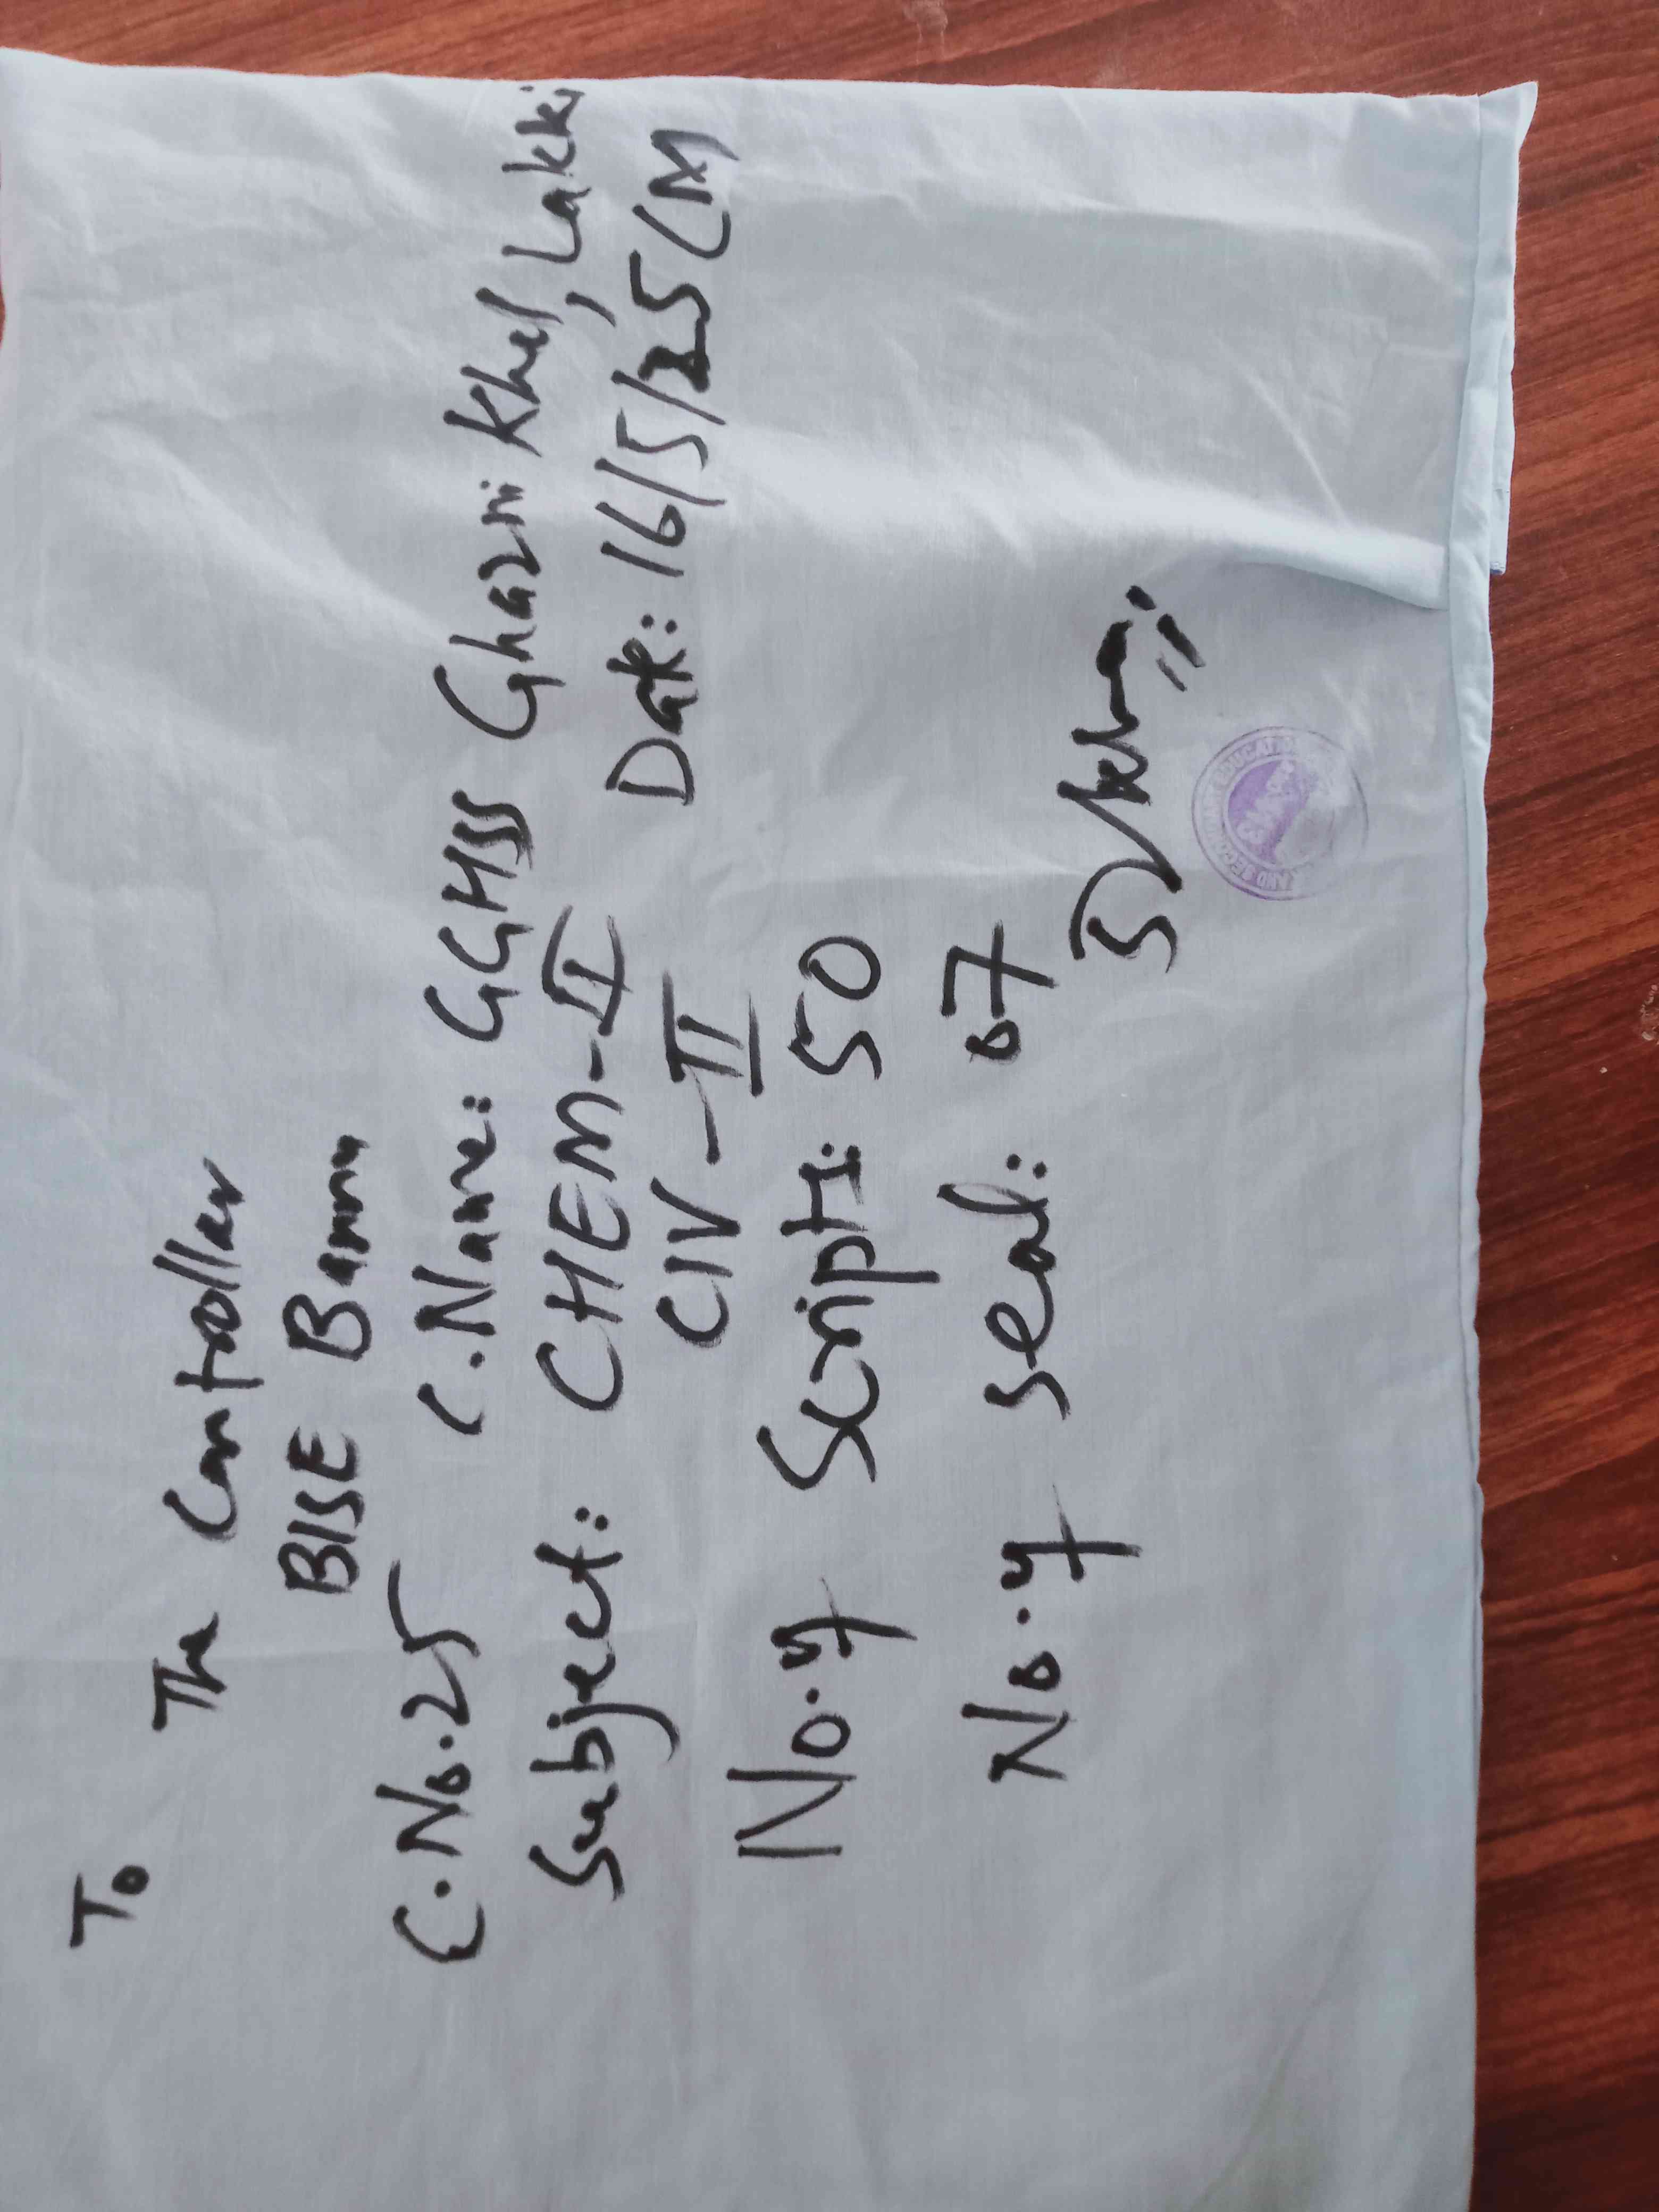 To
The Controller
BISE Bannu
C.No.25 C.Name: GGHSS Ghazni Khel, Lakki
Subject: CHEM-II Date: 16/5/25 (M
CIV-II
No.of Scripts: 50
No.of Seal: 07
AND SECONDARY EDUCATION